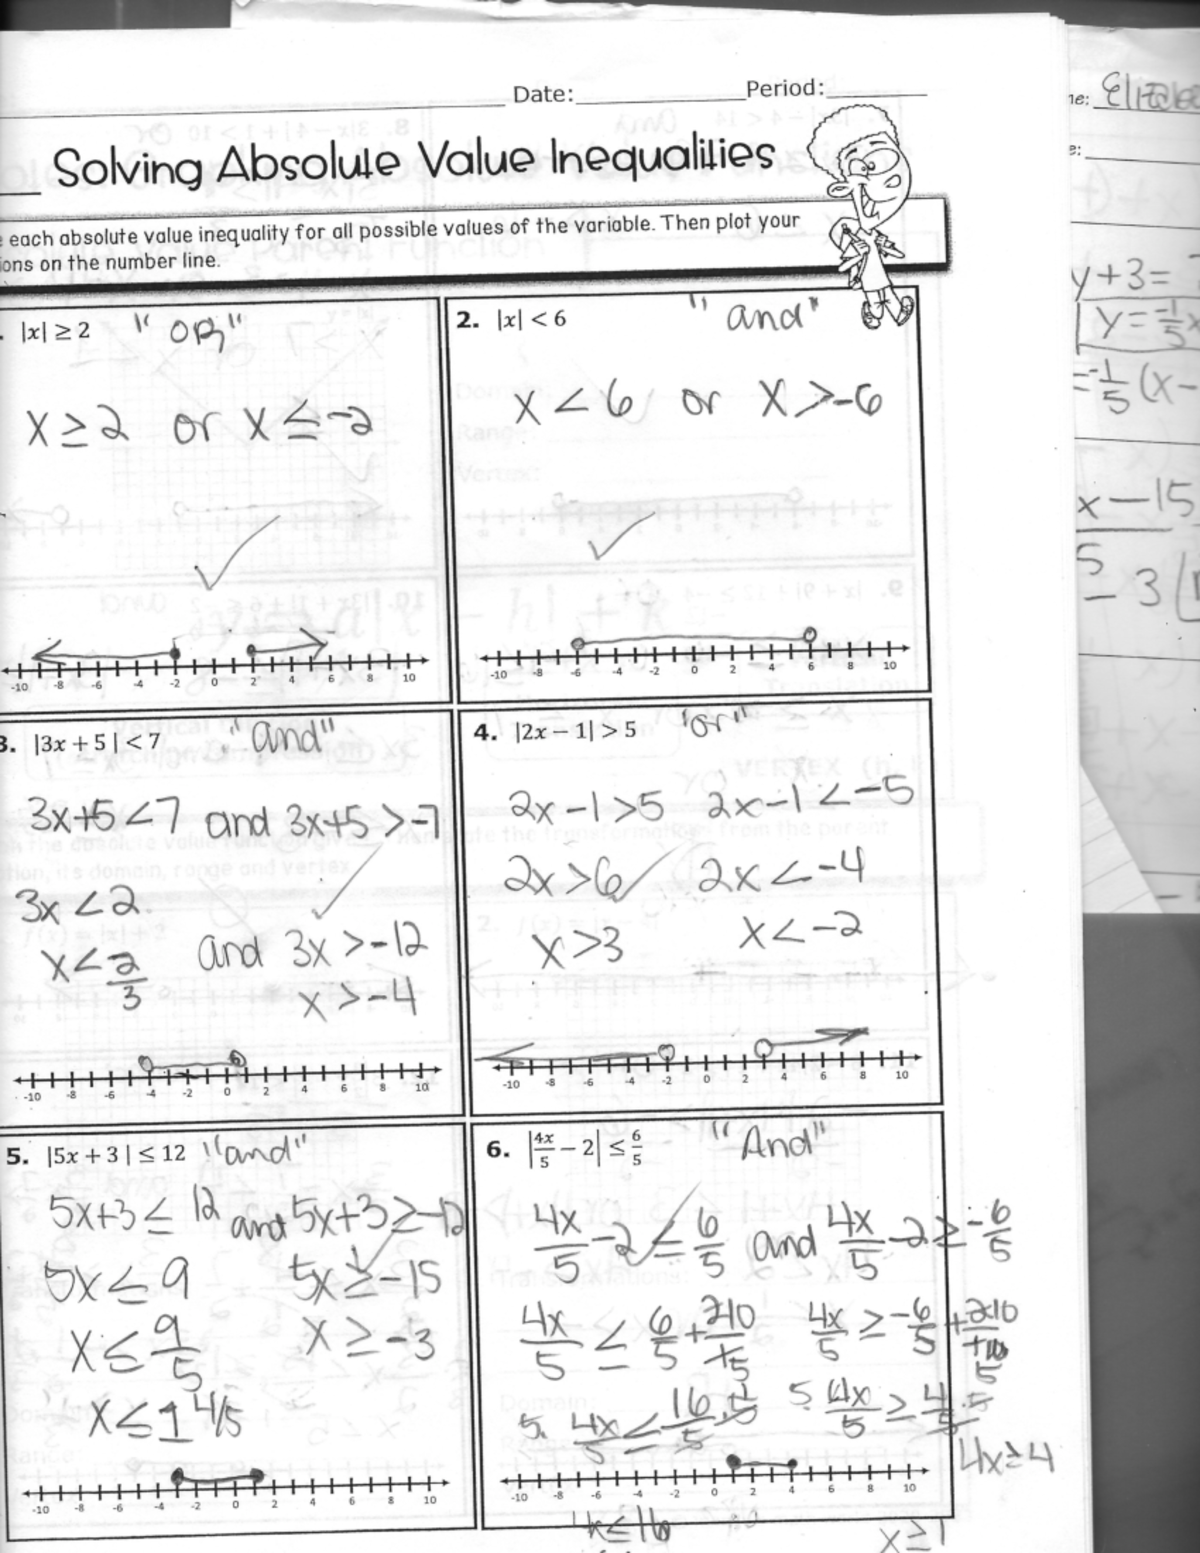 Date: Period:
Solving Absolute Value Inequalities
each absolute value inequality for all possible values of the variable. Then plot your
ions on the number line.
|x| ≥ 2 "OR"
x ≥ 2 or x ≤ -2
-10 -8 -6 -4 -2 0 2 4 6 8 10
2. |x| < 6 "and"
x < 6 or x > -6
-10 -8 -6 -4 -2 0 2 4 6 8 10
3. |3x + 5| < 7 "and"
3x+5<7 and 3x+5>-7
3x<2
and 3x>-12
x<2/3
x>-4
-10 -8 -6 -4 -2 0 2 4 6 8 10
4. |2x − 1| > 5 "or"
2x-1>5 2x-1<-5
2x>6 2x<-4
x>3 x<-2
-10 -8 -6 -4 -2 0 2 4 6 8 10
5. |5x + 3| ≤ 12 "and"
5x+3≤12 and 5x+3≥-12
5x≤9 5x≥-15
x≤9/5 x≥-3
x≤1 4/5
-10 -8 -6 -4 -2 0 2 4 6 8 10
6. |4x/5 − 2| ≤ 6/5 "And"
4x/5-2≤6/5 and 4x/5-2≥-6/5
4x/5≤6/5+ 4x/5≥-6/5+
5·4x/5≤16/5·5 5·4x/5≥4/5·5
4x≥4
-10 -8 -6 -4 -2 0 2 4 6 8 10
4x≤16
x≥1
y+3=
y=-1/5x
=-1/5(x-
x-15
5
-3